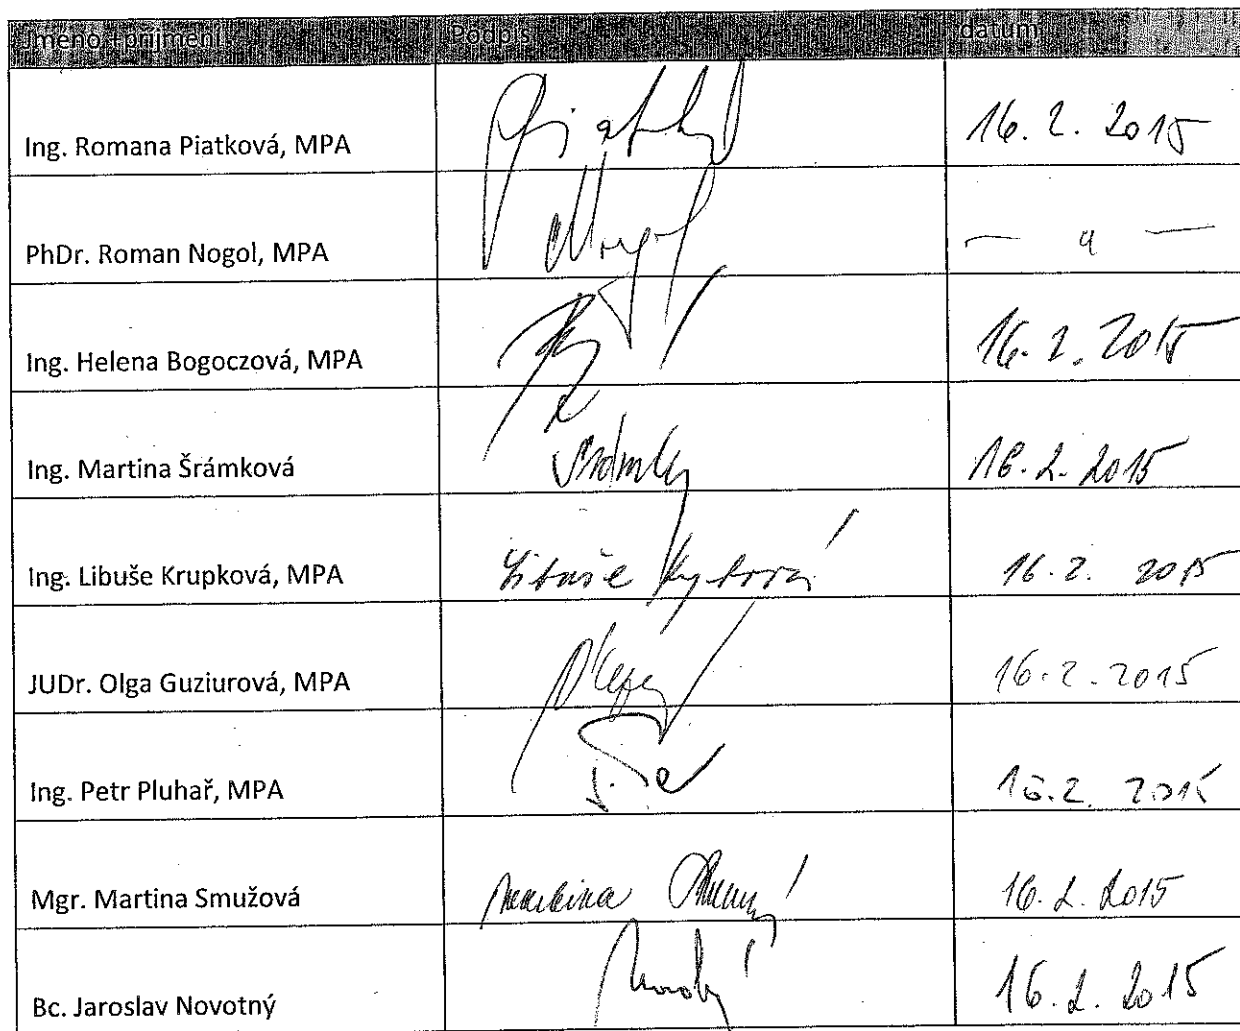 Jméno + příjmení Podpis datum
Ing. Romana Piatková, MPA 16. 2. 2015
PhDr. Roman Nogol, MPA Nogol — " —
Ing. Helena Bogoczová, MPA 16. 2. 2015
Ing. Martina Šrámková 16. 2. 2015
Ing. Libuše Krupková, MPA Libuše 16. 2. 2015
JUDr. Olga Guziurová, MPA 16. 2. 2015
Ing. Petr Pluhař, MPA 16. 2. 2015
Mgr. Martina Smužová Martina 16. 2. 2015
Bc. Jaroslav Novotný 16. 2. 2015